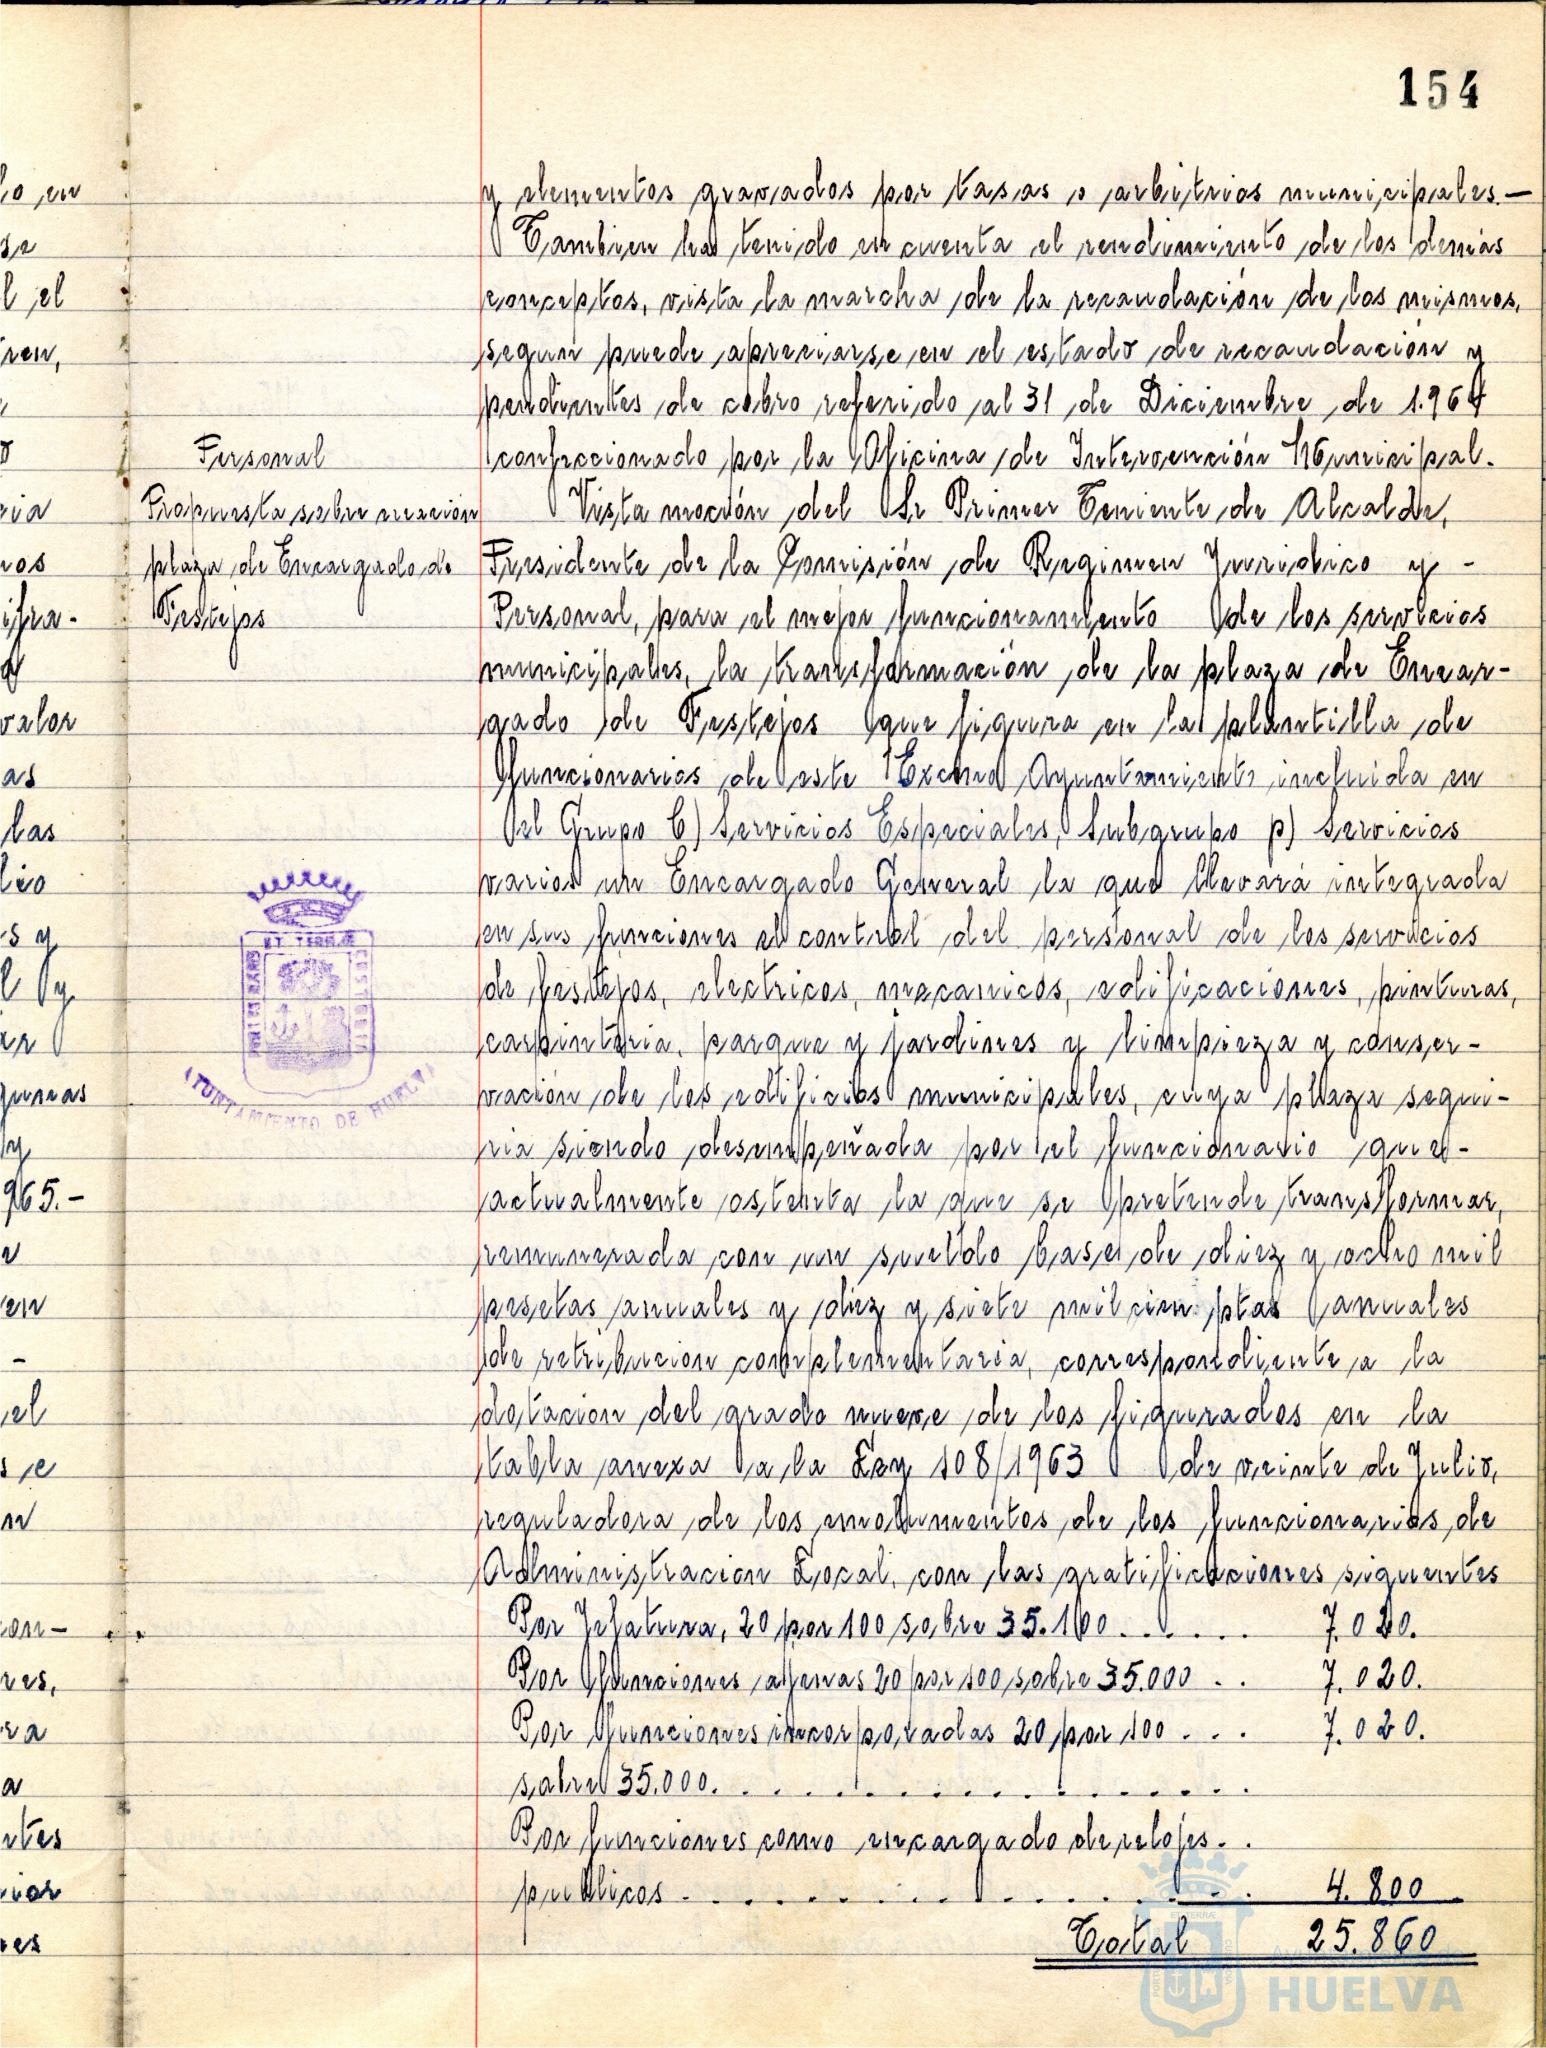 154
y elementos gravados por tasas o arbitrios municipales.—
Tambien ha tenido en cuenta el rendimiento de los demás
conceptos, vista la marcha de la recaudación de los mismos,
segun puede apreciarse en el estado de recaudación y
pendientes de cobro referido al 31 de Diciembre de 1.964
confeccionado por la Oficina de Intervención Municipal.
Personal
Propuesta sobre creación
plaza de Encargado de
Festejos
Vista moción del Sr Primer Teniente de Alcalde,
Presidente de la Comisión de Regimen Juridico y -
Personal, para el mejor funcionamiento de los servicios
municipales, la transformación de la plaza de Encar-
gado de Festejos que figura en la plantilla de
funcionarios de este Excmo Ayuntamiento incluida en
el Grupo C) Servicios Especiales, Subgrupo p) Servicios
varios un Encargado General la que llevará integrada
en sus funciones el control del personal de los servicios
de festejos, electricos, mecanicos, edificaciones, pinturas,
carpinteria, parque y jardines y limpieza y conser-
vación de los edificios municipales, cuya plaza segui-
ria siendo desempeñada por el funcionario que -
actualmente ostenta la que se pretende transformar,
remunerada con un sueldo base de diez y ocho mil
pesetas anuales y diez y siete mil cien ptas anuales
de retribucion complementaria, correspondiente a la
dotacion del grado nueve de los figurados en la
tabla anexa a la Ley 108/1963 de veinte de Julio,
reguladora de los emolumentos de los funcionarios de
Administracion Local, con las gratificaciones siguentes
Por Jefatura, 20 por 100 sobre 35.100 . . . . . . 7.020.
Por funciones ajenas 20 por 100 sobre 35.000 . . 7.020.
Por funciones incorporadas 20 por 100 . . . 7.020.
sobre 35.000. . . . . . . . . . . . . . . . .
Por funciones como encargado de relojes. .
publicos . . . . . . . . . . . . . . 4.800
Total 25.860
ET TERRAE
AYUNTAMIENTO DE HUELVA
HUELVA